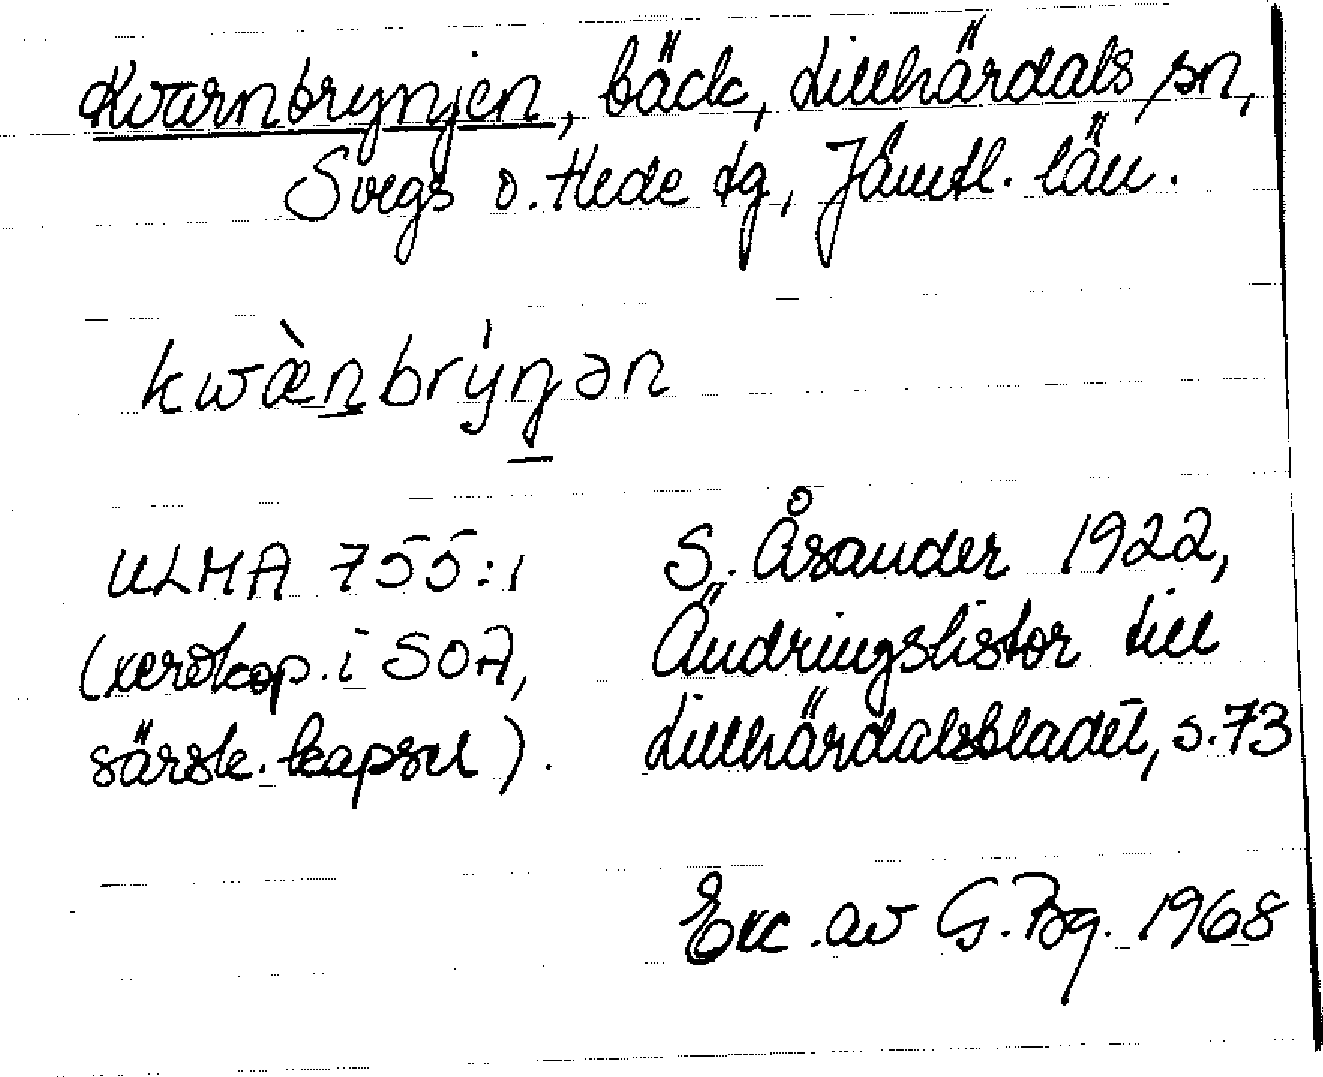 Kvarnbrynjen, bäck, Lillhärdals sn,
Svegs o. Hede tg, Jämtl. län.
kwæ̀nbrýŋən
ULMA 755:1
(xerokop. i SOA,
särsk. kapsel).
S. Åsander 1922,
Ändringslistor till
Lillhärdalsbladet, s. 73
Exc. av G. Bg. 1968